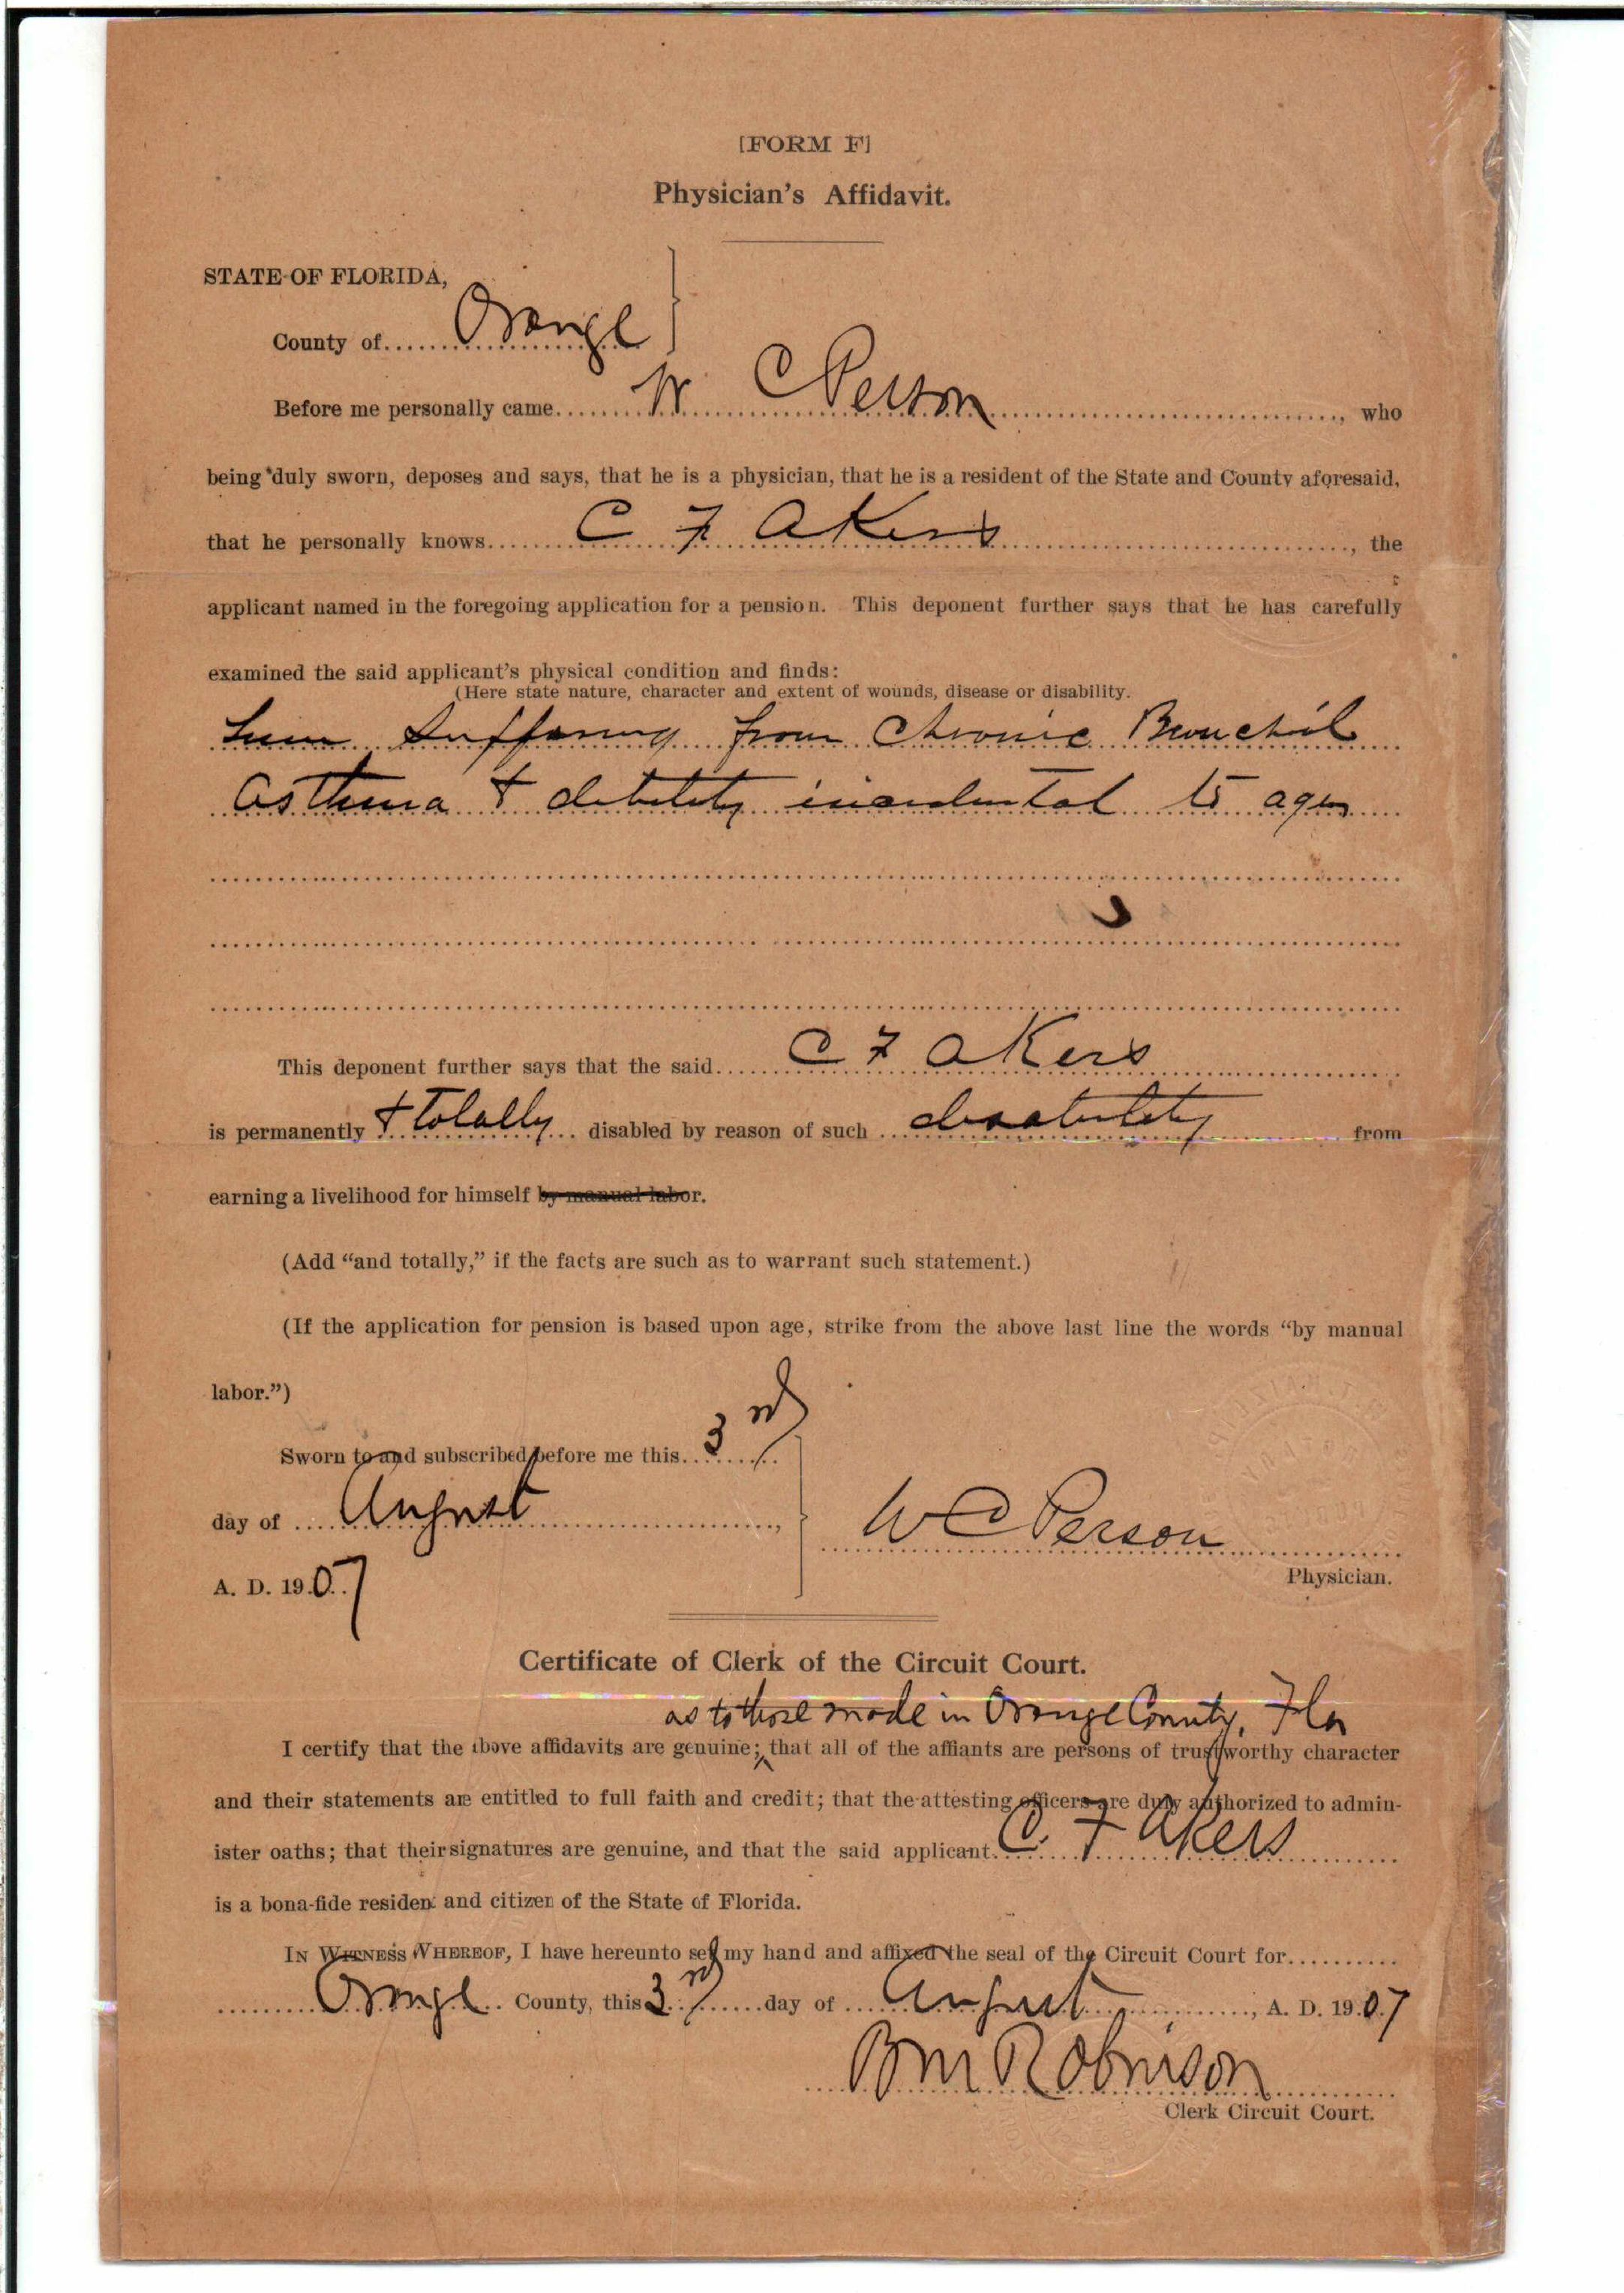 [FORM F]
Physician's Affidavit.
STATE OF FLORIDA,
County of Orange
Before me personally came W C Person, who
being duly sworn, deposes and says, that he is a physician, that he is a resident of the State and County aforesaid,
that he personally knows C F Akers, the
applicant named in the foregoing application for a pension. This deponent further says that he has carefully
examined the said applicant's physical condition and finds:
(Here state nature, character and extent of wounds, disease or disability.
suffering from Chronic Bronchil
Asthma & debility incidental to age
This deponent further says that the said C F Akers
is permanently & Totally disabled by reason of such from
earning a livelihood for himself by manual labor.
(Add "and totally," if the facts are such as to warrant such statement.)
(If the application for pension is based upon age, strike from the above last line the words "by manual
labor.")
Sworn to and subscribed before me this 3rd
day of August,
A. D. 1907
W C Person
Physician.
Certificate of Clerk of the Circuit Court.
as to those made in Orange County, Fla
I certify that the above affidavits are genuine; that all of the affiants are persons of trustworthy character
and their statements are entitled to full faith and credit; that the attesting officers are duly authorized to admin-
ister oaths; that their signatures are genuine, and that the said applicant C. F Akers
is a bona-fide resident and citizen of the State of Florida.
IN WITNESS WHEREOF, I have hereunto set my hand and affixed the seal of the Circuit Court for
Orange County, this 3rd day of August, A. D. 1907
B M Robinson
Clerk Circuit Court.